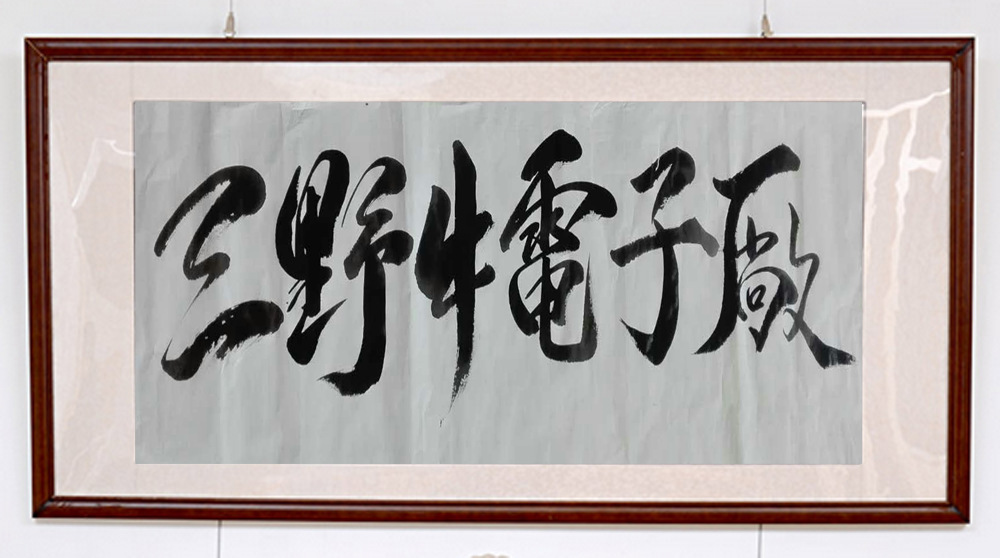 三野牛電子廠